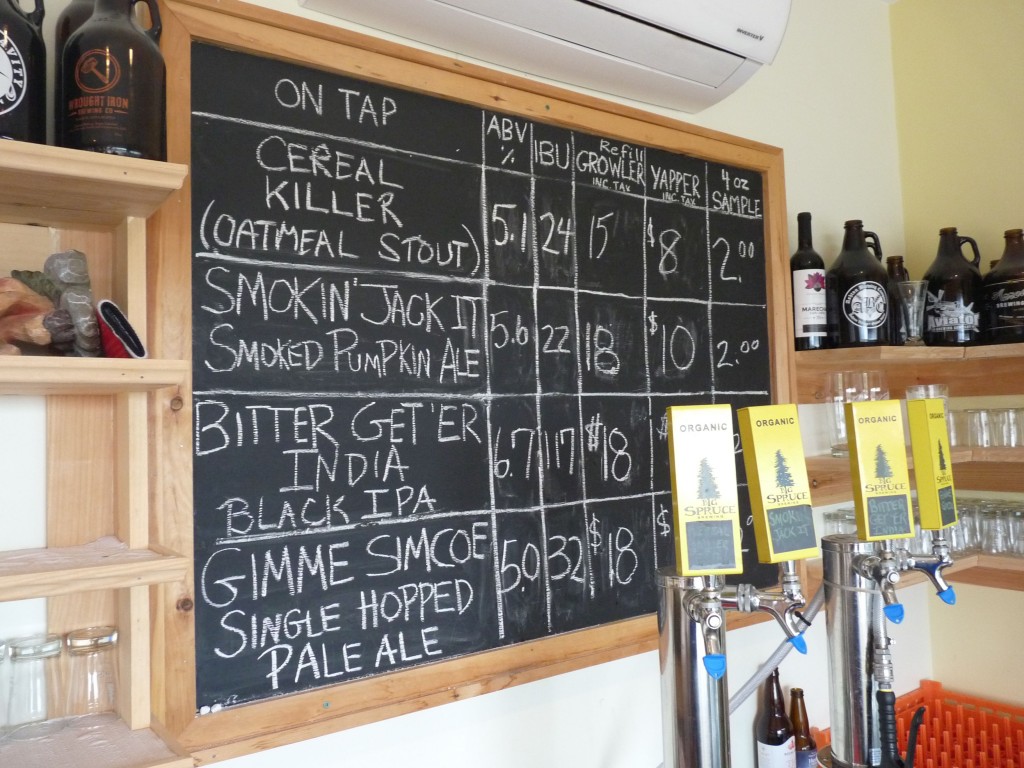 ON TAP
ABV
%
IBU
Refill
GROWLER
INC. TAX
YAPPER
INC. TAX
4 oz
SAMPLE
CEREAL
KILLER
(OATMEAL STOUT)
5.1
24
15
$8
2.00
SMOKIN' JACK IT
SMOKED PUMPKIN ALE
5.6
22
18
$10
2.00
BITTER GET 'ER
INDIA
BLACK IPA
6.7
117
$18
$
GIMME SIMCOE
SINGLE HOPPED
PALE ALE
5.0
32
$18
$
ORGANIC
BIG
SPRUCE
BREWING
ORGANIC
BIG
SPRUCE
BREWING
SMOKIN'
JACK IT
ORGANIC
BIG
SPRUCE
BREWING
BITTER
GET 'ER
WROUGHT IRON
BREWING CO